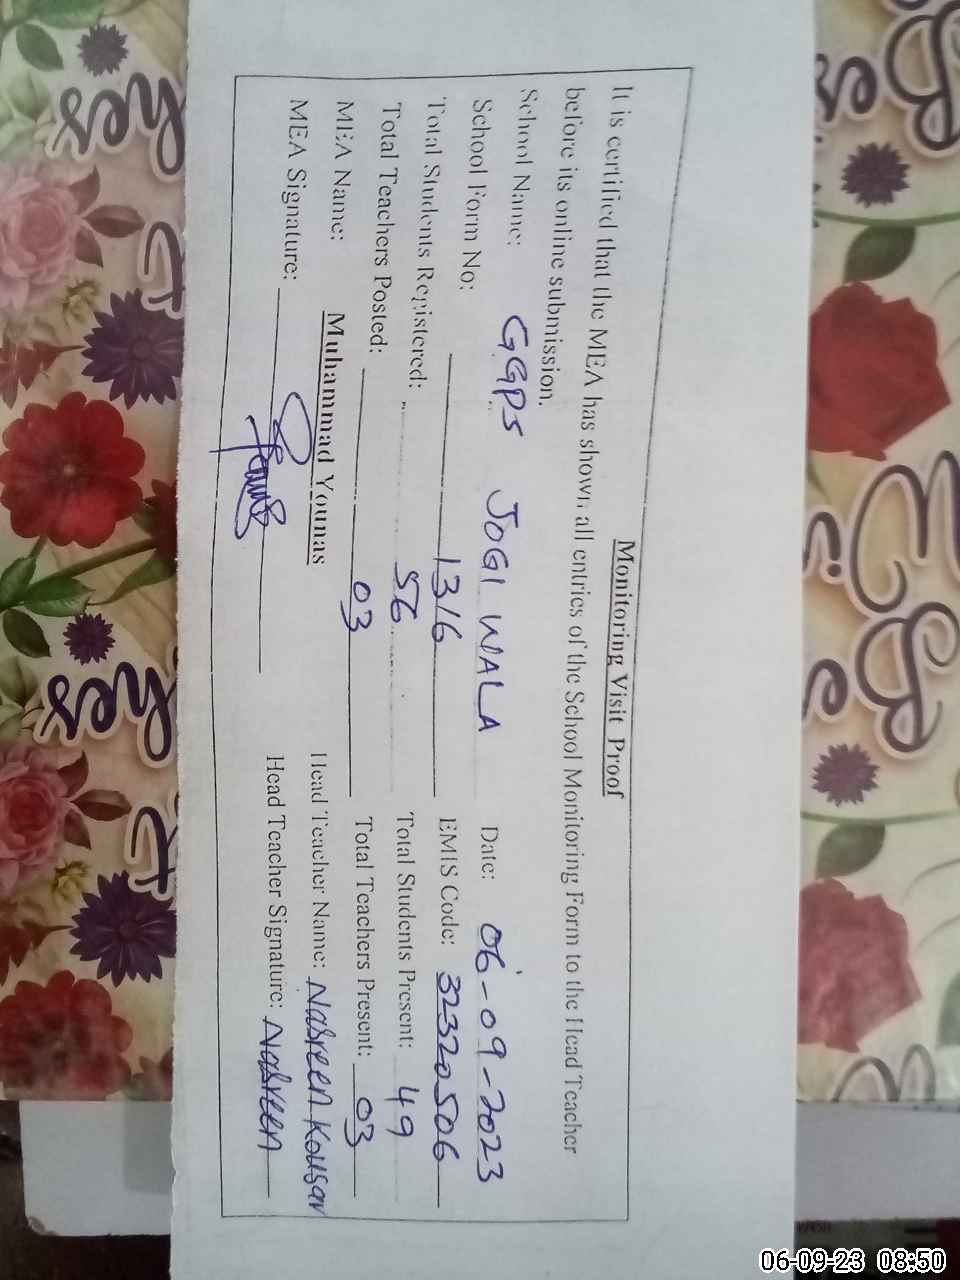 Monitoring Visit Proof
It is certified that the MEA has shown all entries of the School Monitoring Form to the Head Teacher
before its online submission.
School Name: GGPS JOGI WALA Date: 06-09-2023
School Form No: 1316 EMIS Code: 32320506
Total Students Registered: 56 Total Students Present: 49
Total Teachers Posted: 03 Total Teachers Present: 03
MEA Name: Muhammad Younas Head Teacher Name: Nasreen Kousar
MEA Signature: Head Teacher Signature: Nasreen
06-09-23 08:50